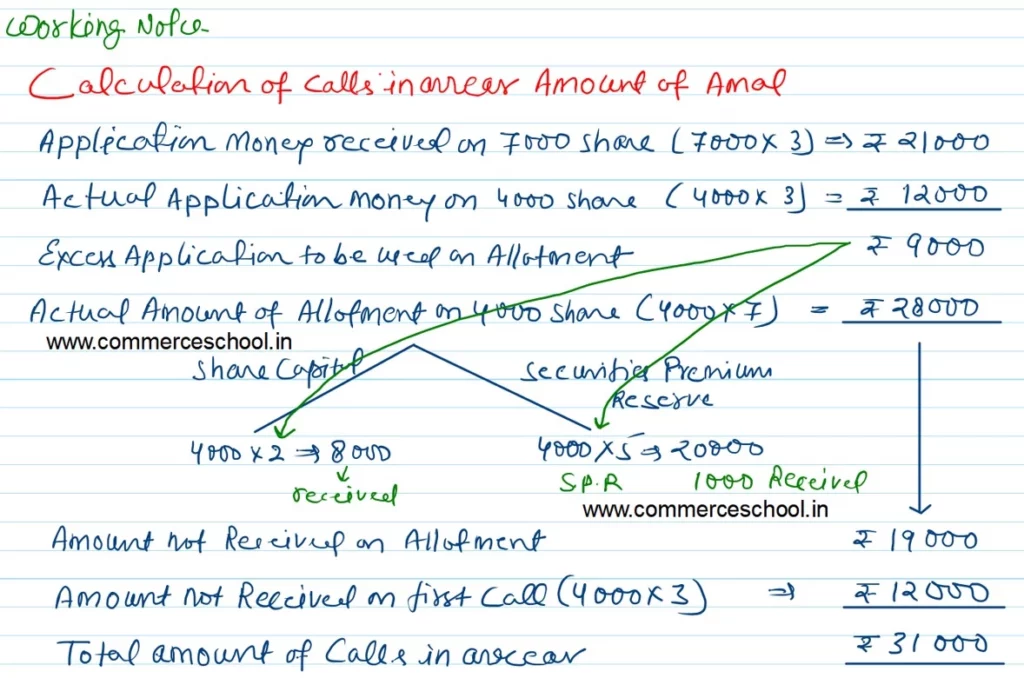 Working Note
Calculation of Calls in arrear Amount of Amal
Application Money received on 7000 share (7000 x 3) ⇒ ₹ 21000
Actual Application Money on 4000 share (4000 x 3) = ₹ 12000
Excess Application to be used on Allotment ₹ 9000
Actual Amount of Allotment on 4000 share (4000 x 7) = ₹ 28000
www.commerceschool.in
Share Capital
Securities Premium
Reserve
4000 x 2 ⇒ 8000
4000 x 5 ⇒ 20000
received
S.P.R 1000 Received
www.commerceschool.in
Amount not Received on Allotment ₹ 19000
Amount not Received on first Call (4000 x 3) ⇒ ₹ 12000
Total amount of Calls in arrear ₹ 31000